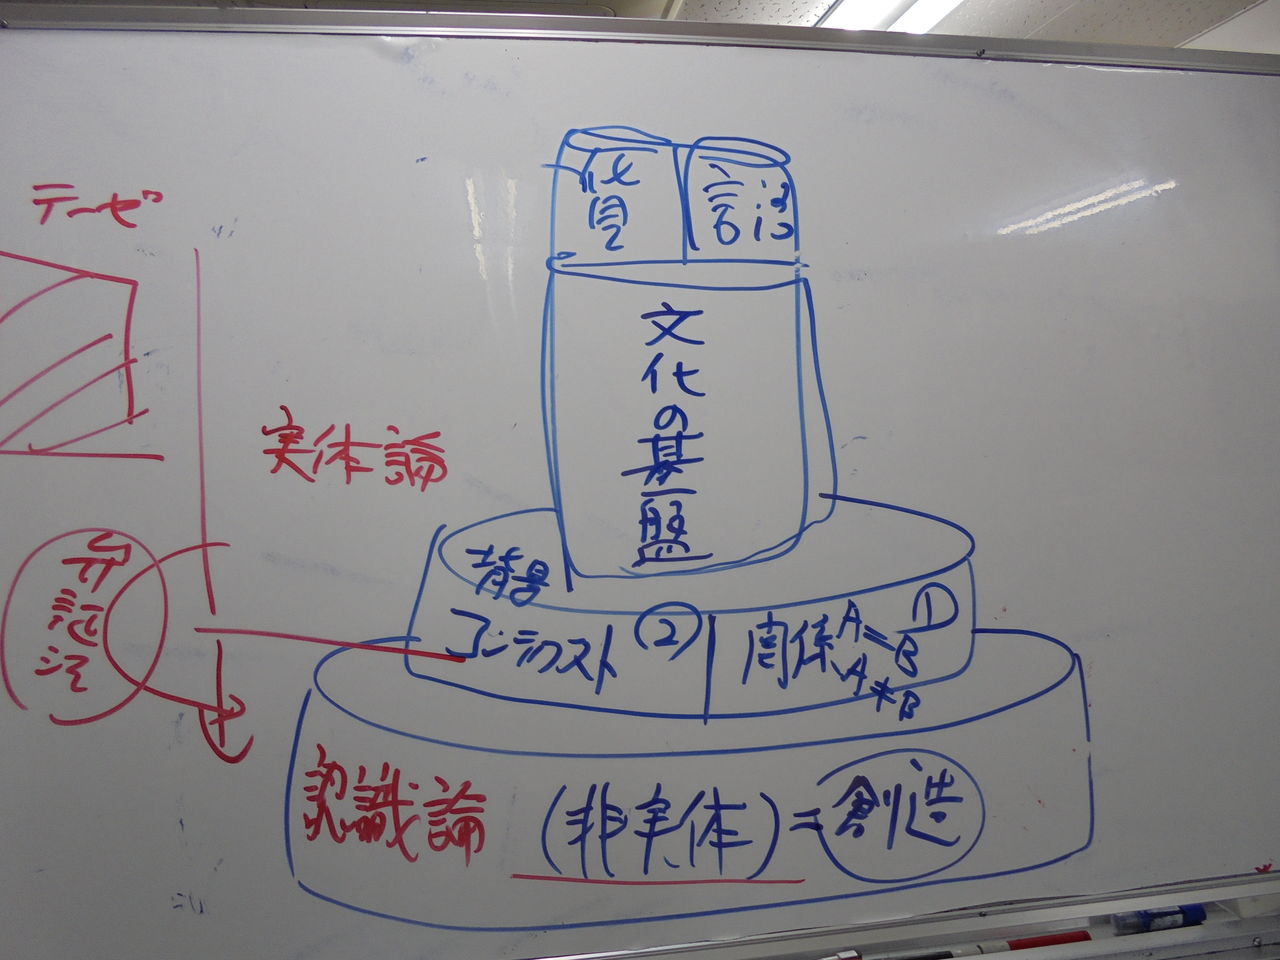 テーゼ
実体論
弁証法
言語
文化の基盤
背景
コンテクスト ②
関係 A=B ①
A*B
認識論 (非実体)=創造